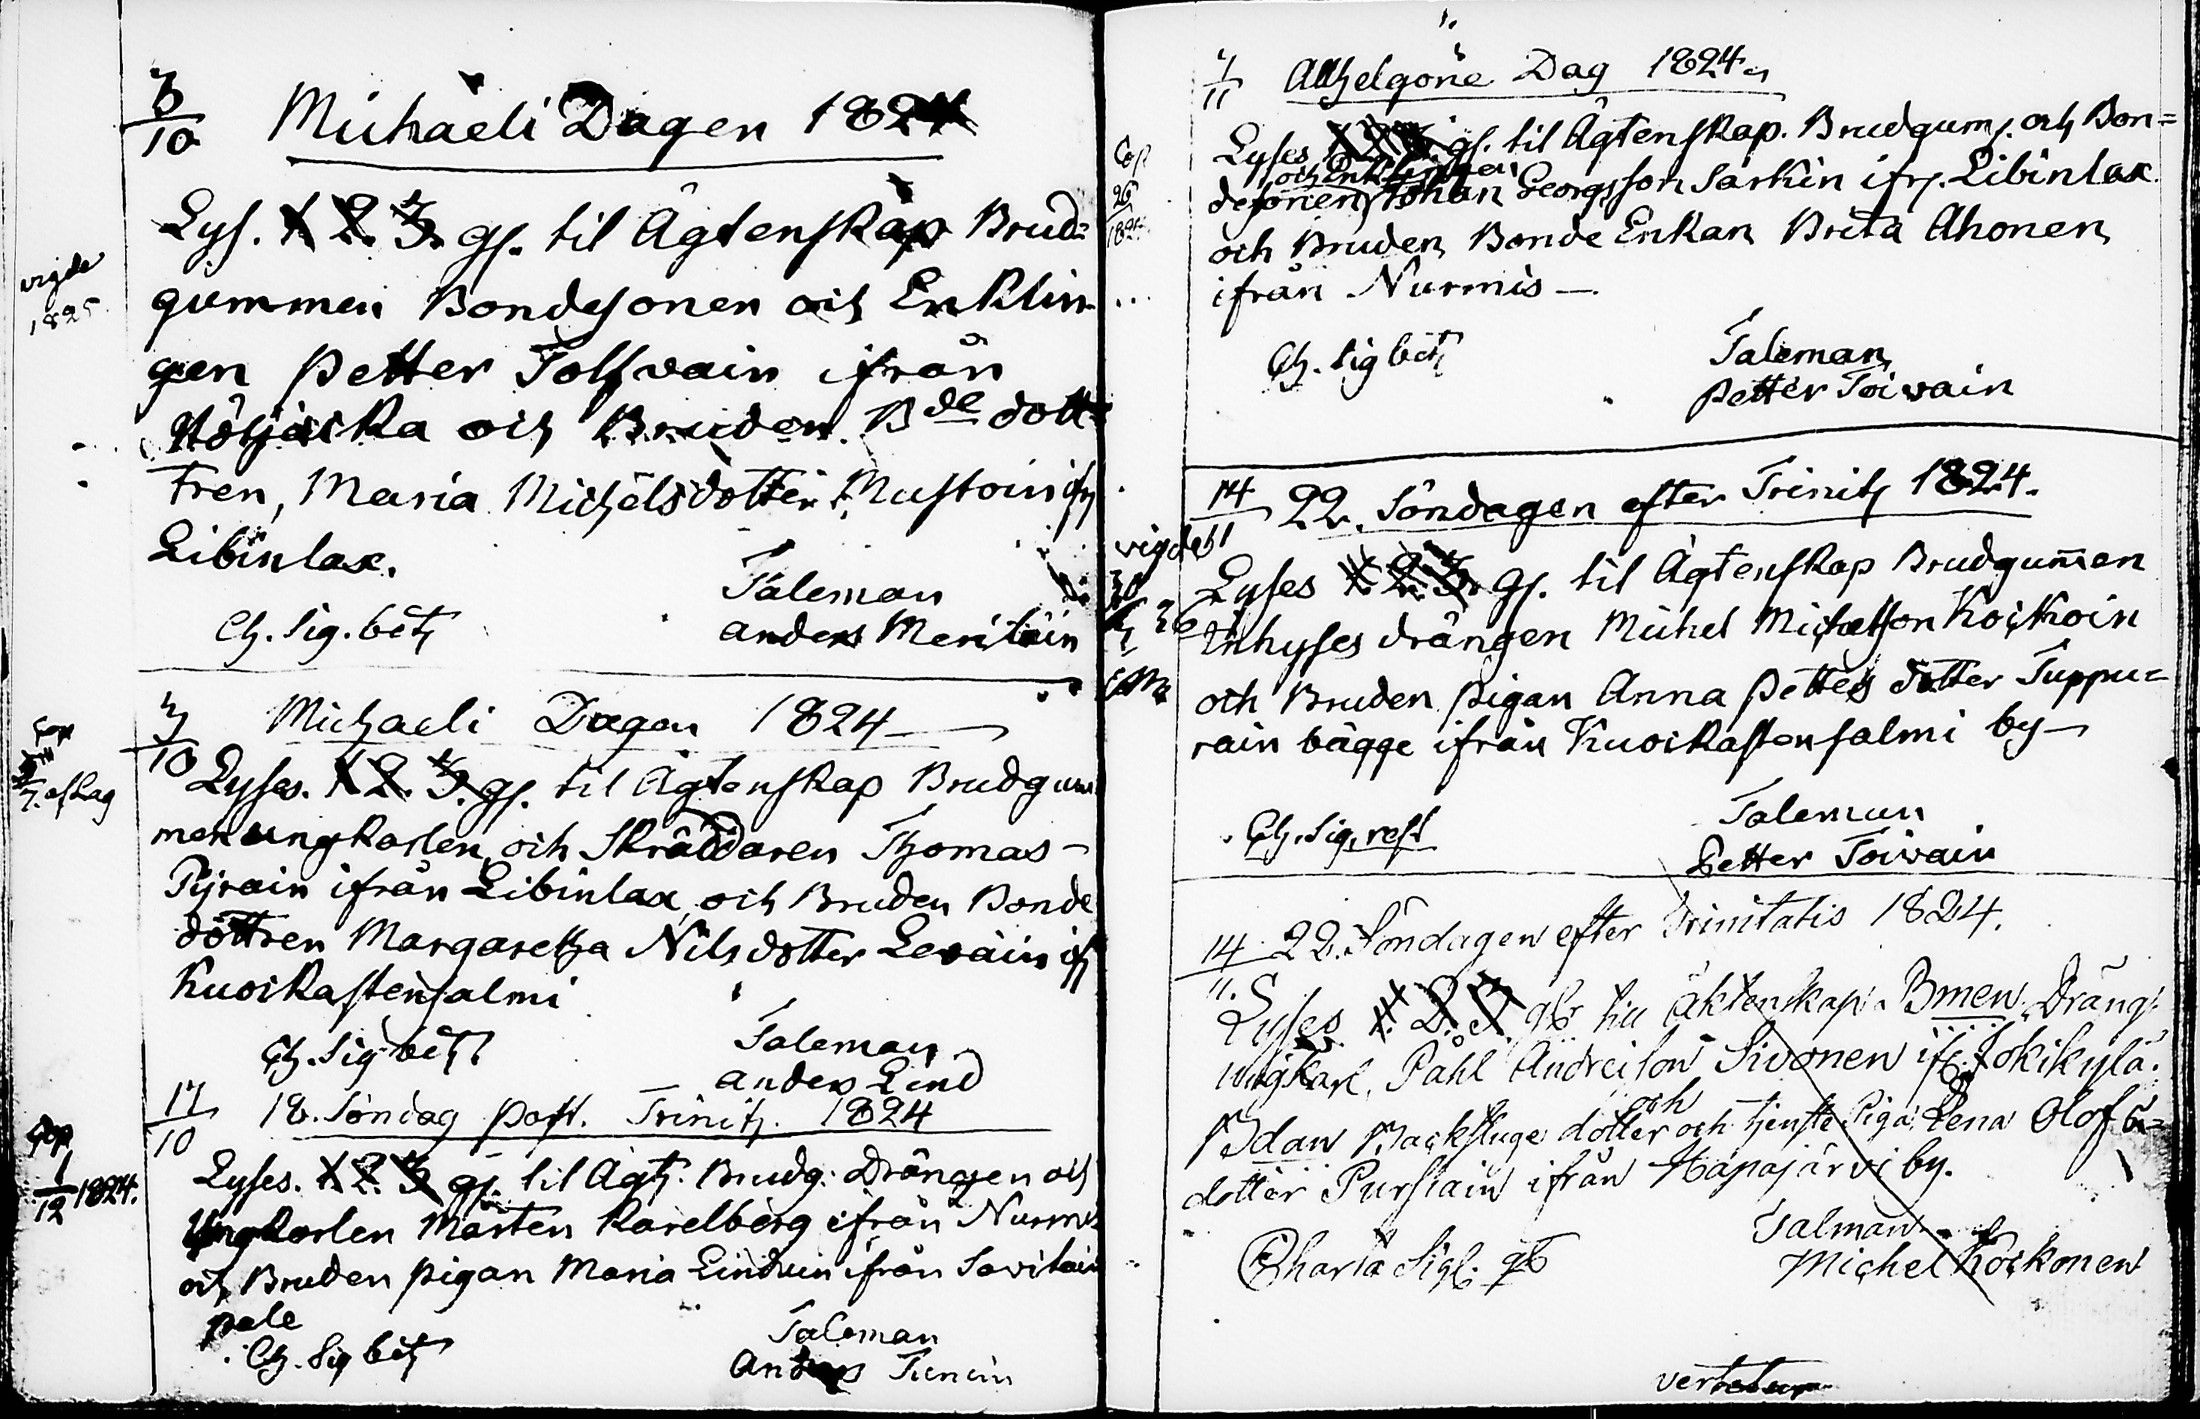 3/10 Michaeli Dagen 1824
Lys. 1 2. 3. gs. til Ägtenskap Brud=
vigde gummen Bondesonen och Enklin
1825. gen Petter Tolfvain ifrån
Höljäcka och Bruden. Bde dott
tren, Maria Michelsdotter Mustoin ifr
Libinlax.
Taleman
Ch. Sig. bet anders Meriläin
3/10 Michaeli Dagen 1824
Cop
Lyses. 1 2. 3. gs. til Ägtenskap Brudgum
men ungkarlen och Skräddaren Thomas
Pyrain ifrån Libinlax och Bruden Bonde
dottren Margaretha Nilsdotter Leväin ifr
Kuoikastensalmi
Ch. Sig bet Taleman
anders Lind
17/10 18. Söndag post. Trinit. 1824
Cop 1/12 1824.
Lyses. 1 2 3 gs. til Ägt. Brudg. Drängen och
Ungkarlen Mårten Karelberg ifrån Nurmes
och Bruden pigan Maria Linduin ifrån Savitai
pale
Ch. Sig bet Taleman
Anders Tienin
7/11 Allhelgone Dag 1824
Cop 26 1824
Lyses 1 2 3. gs. til Ägtenskap. Brudgum. och Bon=
och Enklingen
desonen Johan Georgsson Sarkin ifr. Libinlax
och Bruden Bonde Enkan Brita Ahonen
ifrån Nurmis —
Ch. sig bet Taleman
Petter Toivain
14/11 22. Söndagen efter Trinit 1824.
vigde
Lyses 1. 2. 3. gs. til Ägtenskap Brudgum̄en
Inhyses drängen Michel Michelson Koickoin
och Bruden pigan Anna Petters dotter Tuppu=
rain bägge ifrån Kuoikastensalmi by
Ch. Sig. rest Taleman
Petter Toivain
14/11. 22. Söndagen efter Trinitatis 1824.
Lyses 1. 2. 3 gr till äktenskap Bmen Dräng.
ungkarl, Påhl Andreison Sivonen ifr. Jokikylä.
och
Bdan Backstuge dotter och tjenste Piga Lena Olofs=
dotter Pursiain ifrån Hapajärvi by.
Charta Sigl. gr Talman
Michel Kockonen
vertatur